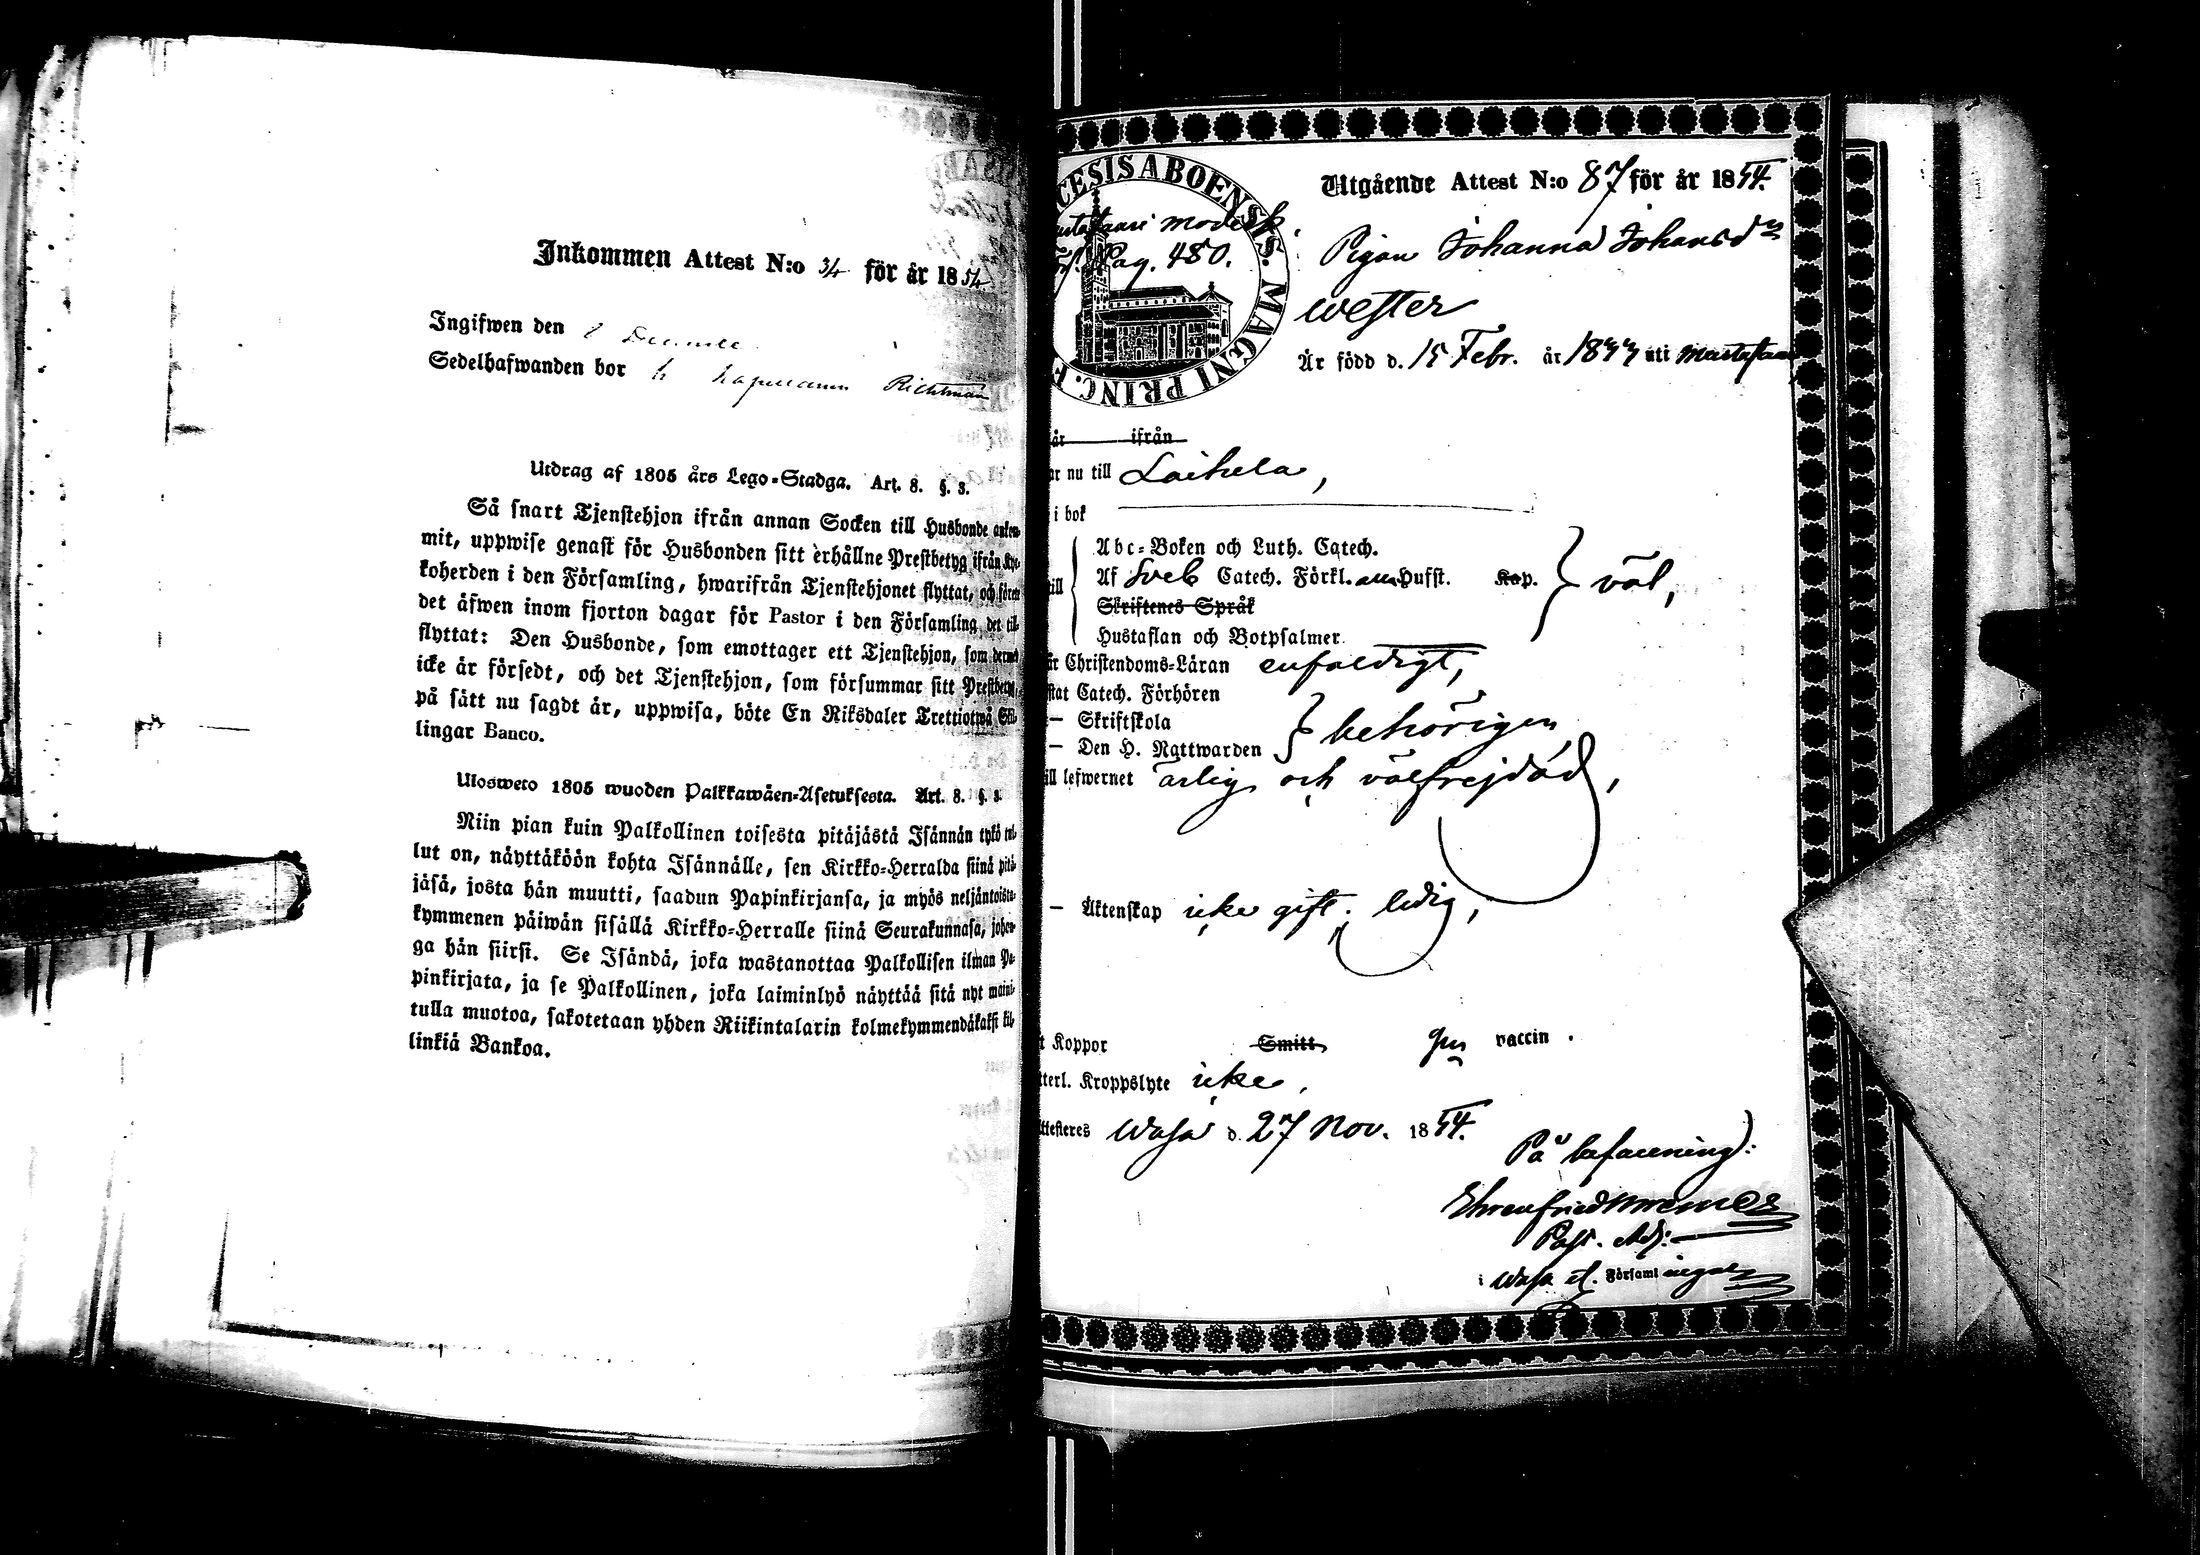 Inkommen Attest N:o 34 för år 1854
Ingifwen den 2 December
Sedelhafwanden bor
Utdrag af 1805 års Lego-Stadga. Art. 8. §. 3.
Så snart Tjenstehjon ifrån annan Socken till Husbonde ankom-
mit, uppwise genast för Husbonden sitt erhållne Prestbetyg ifrån Kyr-
koherden i den Församling, hwarifrån Tjenstehjonet flyttat, och förete
det äfwen inom fjorton dagar för Pastor i den Församling det till-
flyttat: Den Husbonde, som emottager ett Tjenstehjon, som dermed
icke är försedt, och det Tjenstehjon, som försummar sitt Prestbetyg,
på sätt nu sagdt är, uppwisa, böte En Riksdaler Trettiotwå Skil-
lingar Banco.
Ulosweto 1805 wuoden Palkkawäen-Asetuksesta. Art. 8. §. 3.
Niin pian kuin Palkollinen toisesta pitäjästä Isännän tykö tul-
lut on, näyttäköön kohta Isännälle, sen Kirkko-Herralda siinä pitä-
jäsä, josta hän muutti, saadun Papinkirjansa, ja myös neljäntoista-
kymmenen päiwän sisällä Kirkko-Herralle siinä Seurakunnasa, johon-
ga hän siirsi. Se Isändä, joka wastanottaa Palkollisen ilman Pa-
pinkirjata, ja se Palkollinen, joka laiminlyö näyttää sitä nyt maini-
tulla muotoa, sakotetaan yhden Riikintalarin kolmekymmendäkaksi kil-
linkiä Bankoa.
CESIS ABOENSIS. MAGNI PRINC. F
Utgående Attest N:o 87 för år 1854.
Pag. 480.
Pigan Johanna Johansdr
Wester
Är född d. 15 Febr. år 1833 uti Mustasaari
är ifrån
ar nu till Laihela,
i bok
Abc-Boken och Luth. Catech.
Af Sveb Catech. Förkl. Hufst. Kap.
till } väl,
Skriftenes Språk
Hustaflan och Botpsalmer.
är Christendoms-Läran enfaldigt,
stat Catech. Förhören
— Skriftskola
} behörigen
— Den H. Nattwarden
till lefwernet ärlig och välfrejdad,
— Äktenskap icke gift; ledig,
t Koppor Smitt, gm vaccin.
tterl. Kroppslyte icke.
Attesteres Wasa d. 27 Nov. 1854.
På befallning:
Past. Adj:
i Wasa st. Församlingar